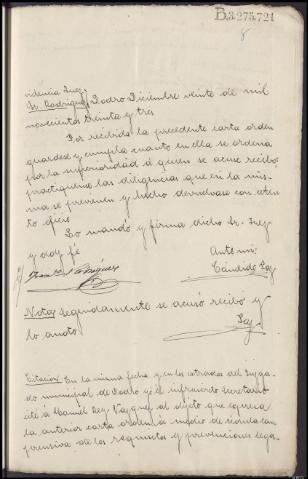 B.3.275.721
8
videncia Juez
Sr. Rodriguez Dodro Diciembre veinte de mil
novecientos treinta y tres
Por recibida la precedente carta orden
guardese y cumpla cuanto en ella se ordena
por la superioridad á quien se acuse recibo
practiquense las diligencias que en la mis-
ma se previenen y hecho devuelvase con aten-
to oficio
Lo mandó y firma dicho Sr. Juez
y doy fé
Ante mi
Candido
Nota Seguidamente se acusó recibo y
lo anoto.
Citacion En la misma fecha y en los estrados del Juzga-
do municipal de Dodro yó el infrascrito Secretario
cité a Manuel Rey Vazquez al objeto que expresa
la anterior carta orden por medio de cedula com-
prensiva de los requisitos y prevenciones lega-